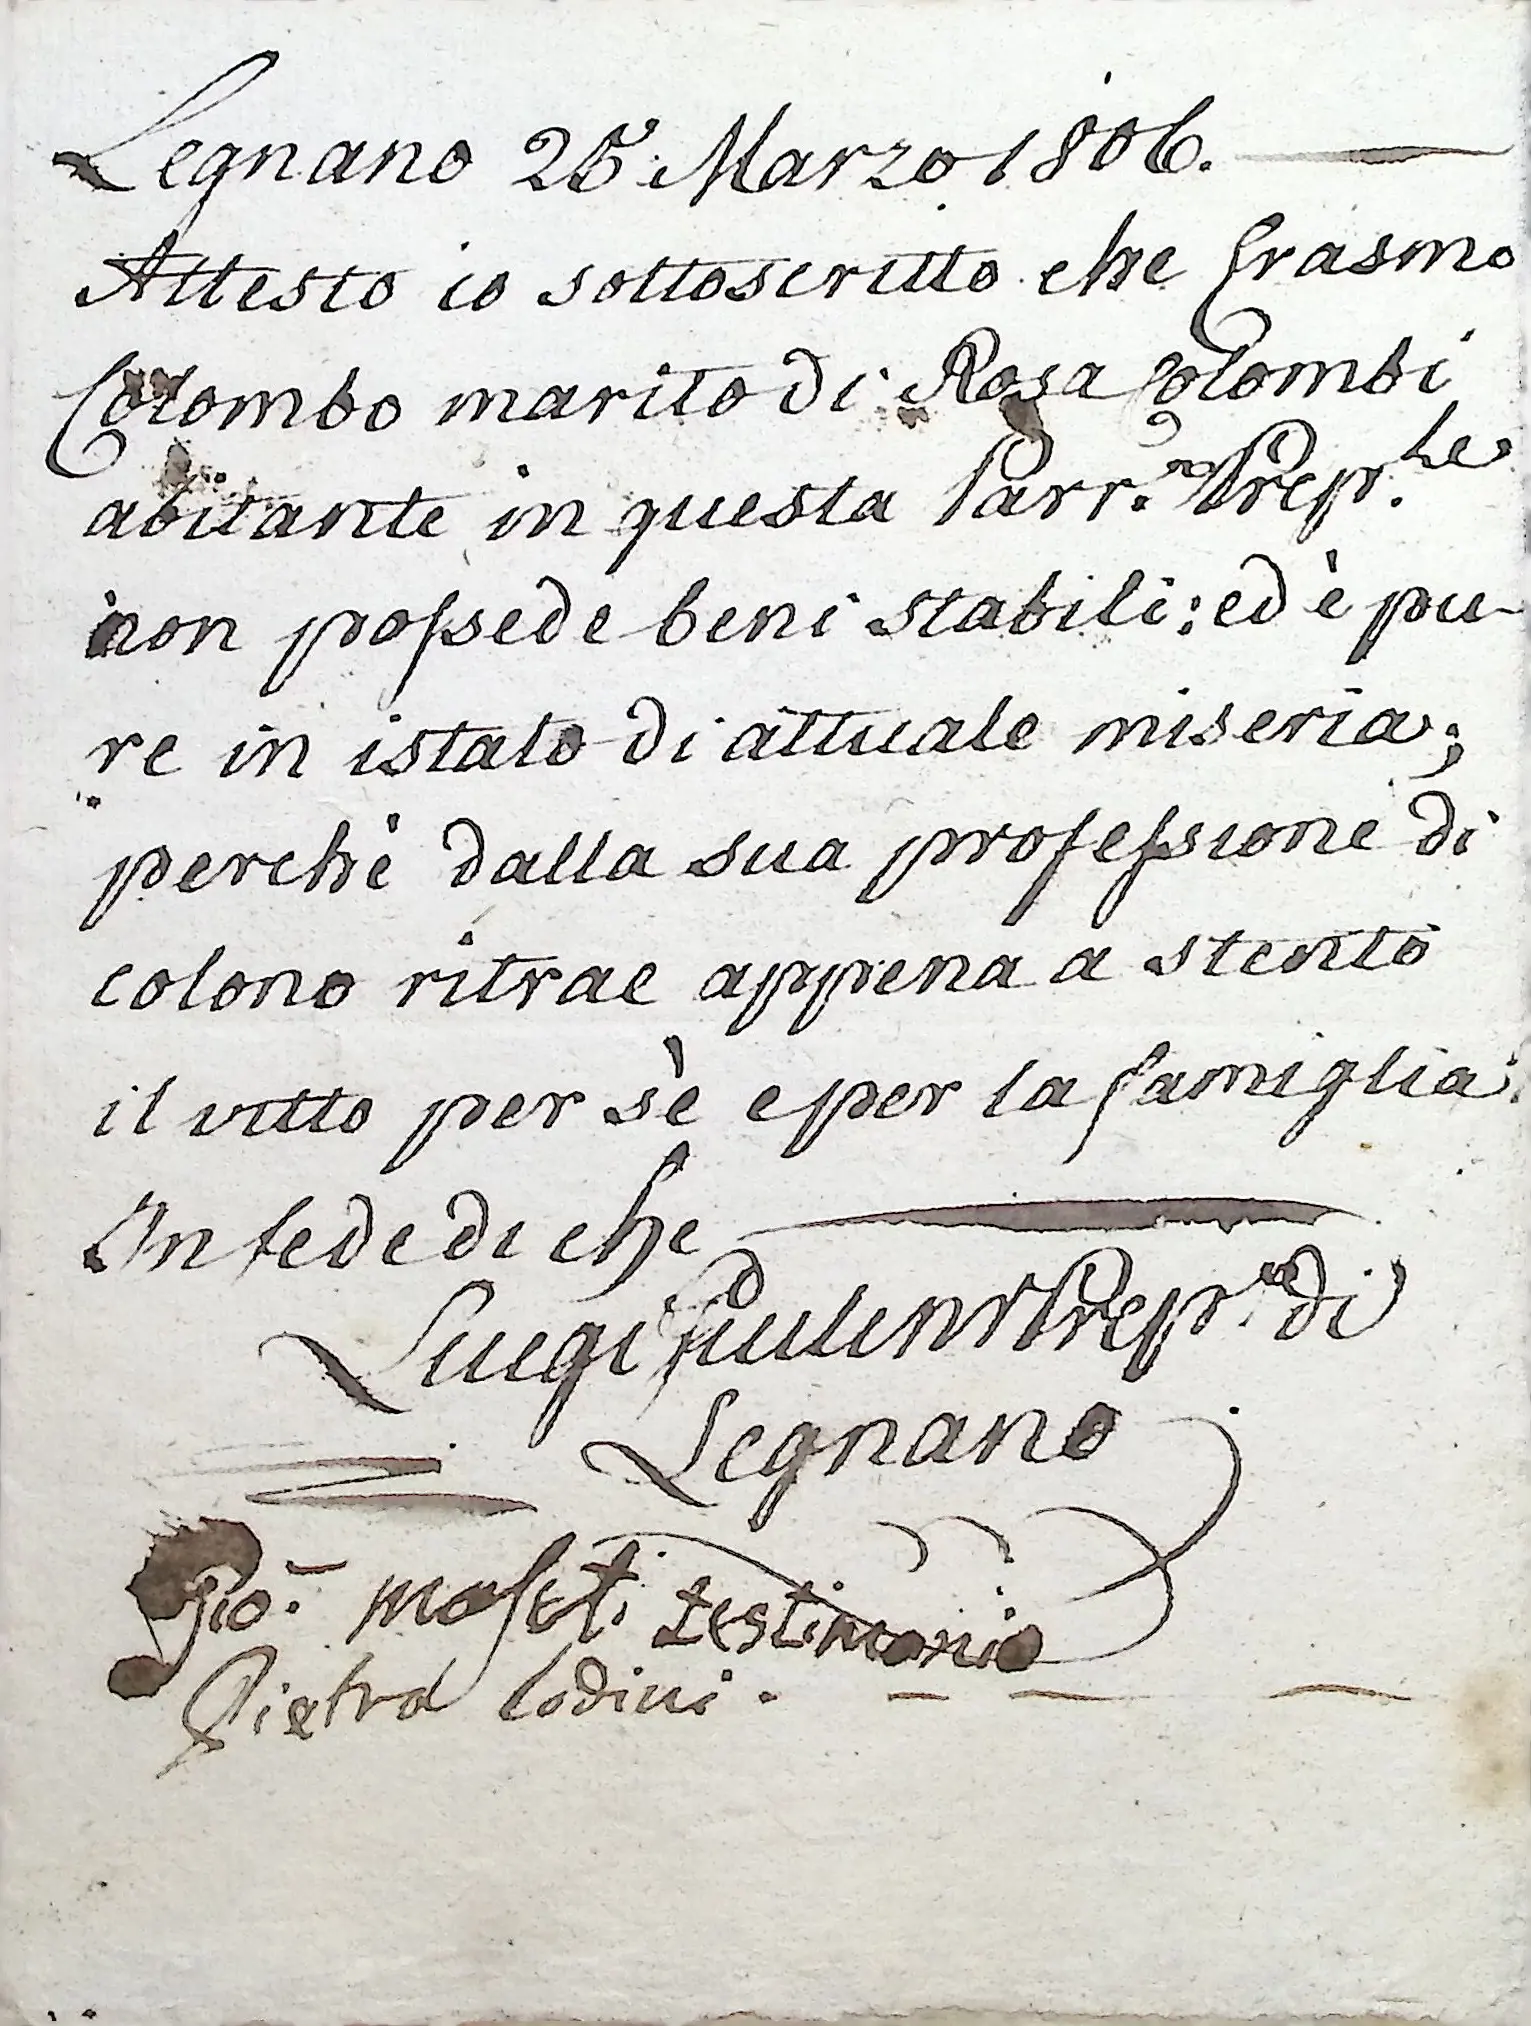 Legnano 25 Marzo 1806.
Attesto io sottoscritto che Erasmo
Colombo marito di Rosa Colombi
abitante in questa Parr.a Prep.le
non possede beni stabili: ed è pu-
re in istato di attuale miseria;
perchè dalla sua professione di
colono ritrae appena a stento
il vitto per sè e per la famiglia.
In fede di che
Luigi Prep.o di
Legnano
Gio. testimonio
Pietro